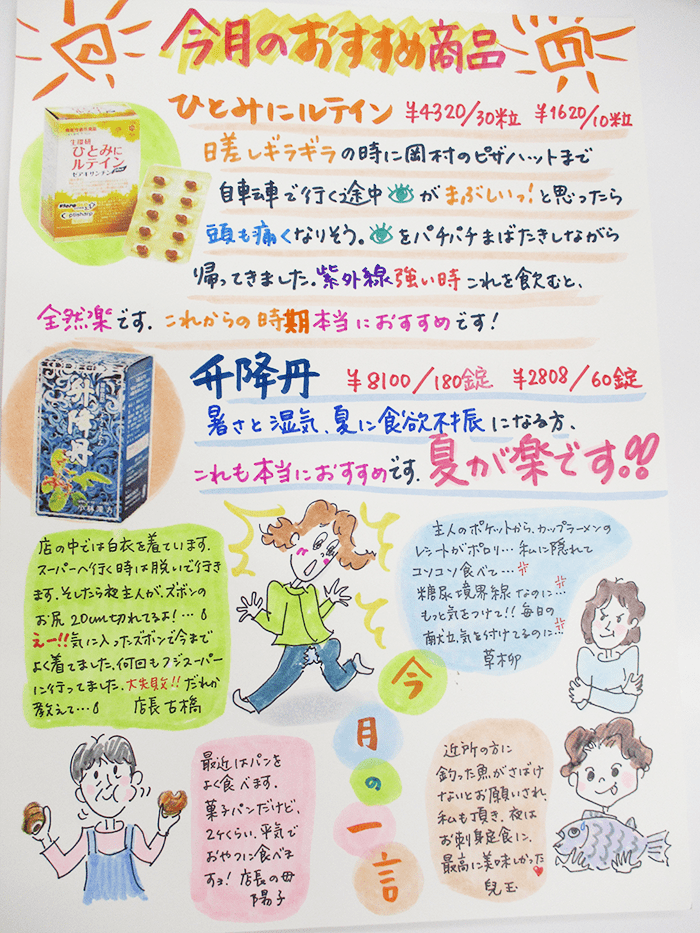 今月のおすすめ商品
ひとみにルテイン ¥4320/30粒 ¥1620/10粒
日差しギラギラの時に岡村のピザハットまで
自転車で行く途中がまぶしいっ!と思ったら
頭も痛くなりそう。をパチパチまばたきしながら
帰ってきました。紫外線強い時これを飲むと、
全然楽です。これからの時期本当におすすめです!
生環研
ひとみに
ルテイン
升降丹 ¥8100/180錠 ¥2808/60錠
暑さと湿気、夏に食欲不振になる方、
これも本当におすすめです。夏が楽です!!
升降丹
小林漢方
店の中では白衣を着ています。
スーパーへ行く時は脱いで行き
ます。そしたら夜主人が、ズボンの
お尻20cm切れてるよ!…
えー!!気に入ったズボンで今まで
よく着てました。何回もフジスーパー
に行ってました。大失敗!!だれか
教えて…
店長 古橋
主人のポケットから、カップラーメンの
レシートがポロリ…私に隠れて
コソコソ食べて…
糖尿境界線なのに…
もっと気をつけて!!毎日の
献立、気を付けてるのに…
草柳
今月の一言
最近はパンを
よく食べます。
菓子パンだけど、
2ケくらい、平気で
おやつに食べま
すョ!店長の母
陽子
近所の方に
釣った魚がさばけ
ないとお願いされ、
私も頂き、夜は
お刺身定食に、
最高に美味しかった
児玉